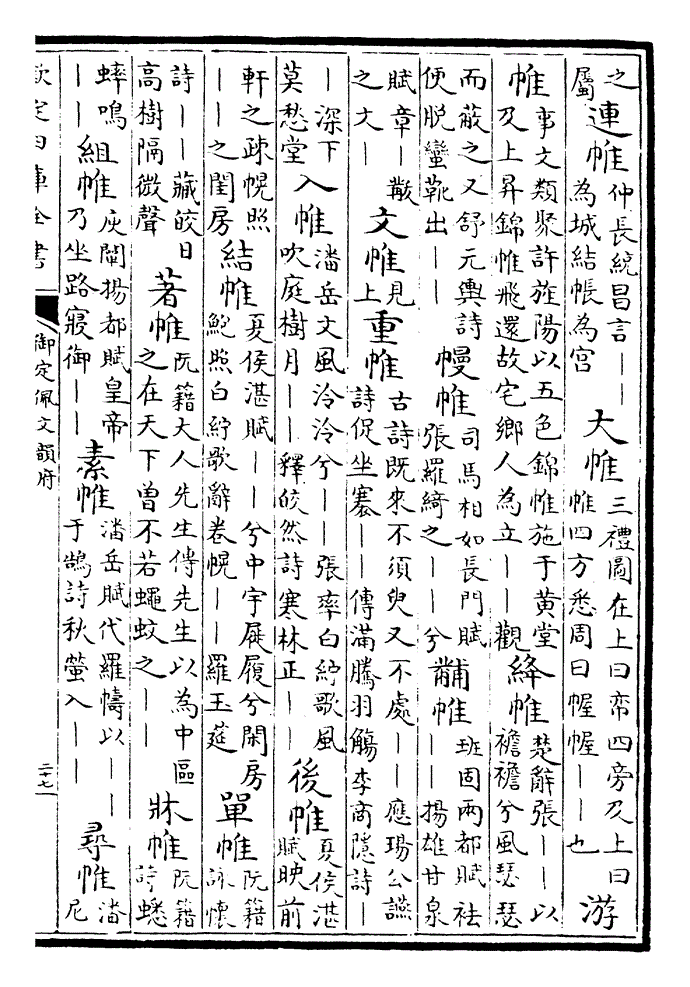 之屬連帷仲長統昌言｜｜為城結帳為宮大帷三禮圖在上曰帟四旁及上曰帷四方悉周曰幄幄｜｜也游
帷事文類聚許旌陽以五色錦帷施于黄堂及上昇錦帷飛還故宅鄉人為立｜｜觀絳帷楚辭張｜｜以襜襜兮風瑟瑟
而蔽之又舒元輿詩便脱蠻靴出｜｜幔帷司馬相如長門賦張羅綺之｜｜兮黼帷班固兩都賦袪｜｜揚雄甘泉
賦章｜黻之文｜文帷見上重帷古詩既來不須臾又不處｜｜應瑒公讌詩促坐褰｜｜傳滿騰羽觴李商隱詩｜
｜深下莫愁堂入帷潘岳文風泠泠兮｜｜張率白紵歌風吹庭樹月｜｜釋皎然詩寒林正｜｜後帷夏侯湛賦映前
軒之疎幌照｜｜之閨房結帷夏侯湛賦｜｜兮中宇屣履兮閑房鮑照白紵歌辭卷幌｜｜羅玉筵單帷阮籍詠懷
詩｜｜蔽皎日高樹隔微聲著帷阮籍大人先生傳先生以為中區之在天下曾不若蠅蚊之｜｜牀帷阮籍詩蟋
蟀鳴｜｜組帷灰闡揚都賦皇帝乃坐路寢御｜｜素帷潘岳賦代羅幬以｜｜于鵠詩秋螢入｜｜尋帷潘尼
欽定四庫全書
御定佩文韻府
二十七